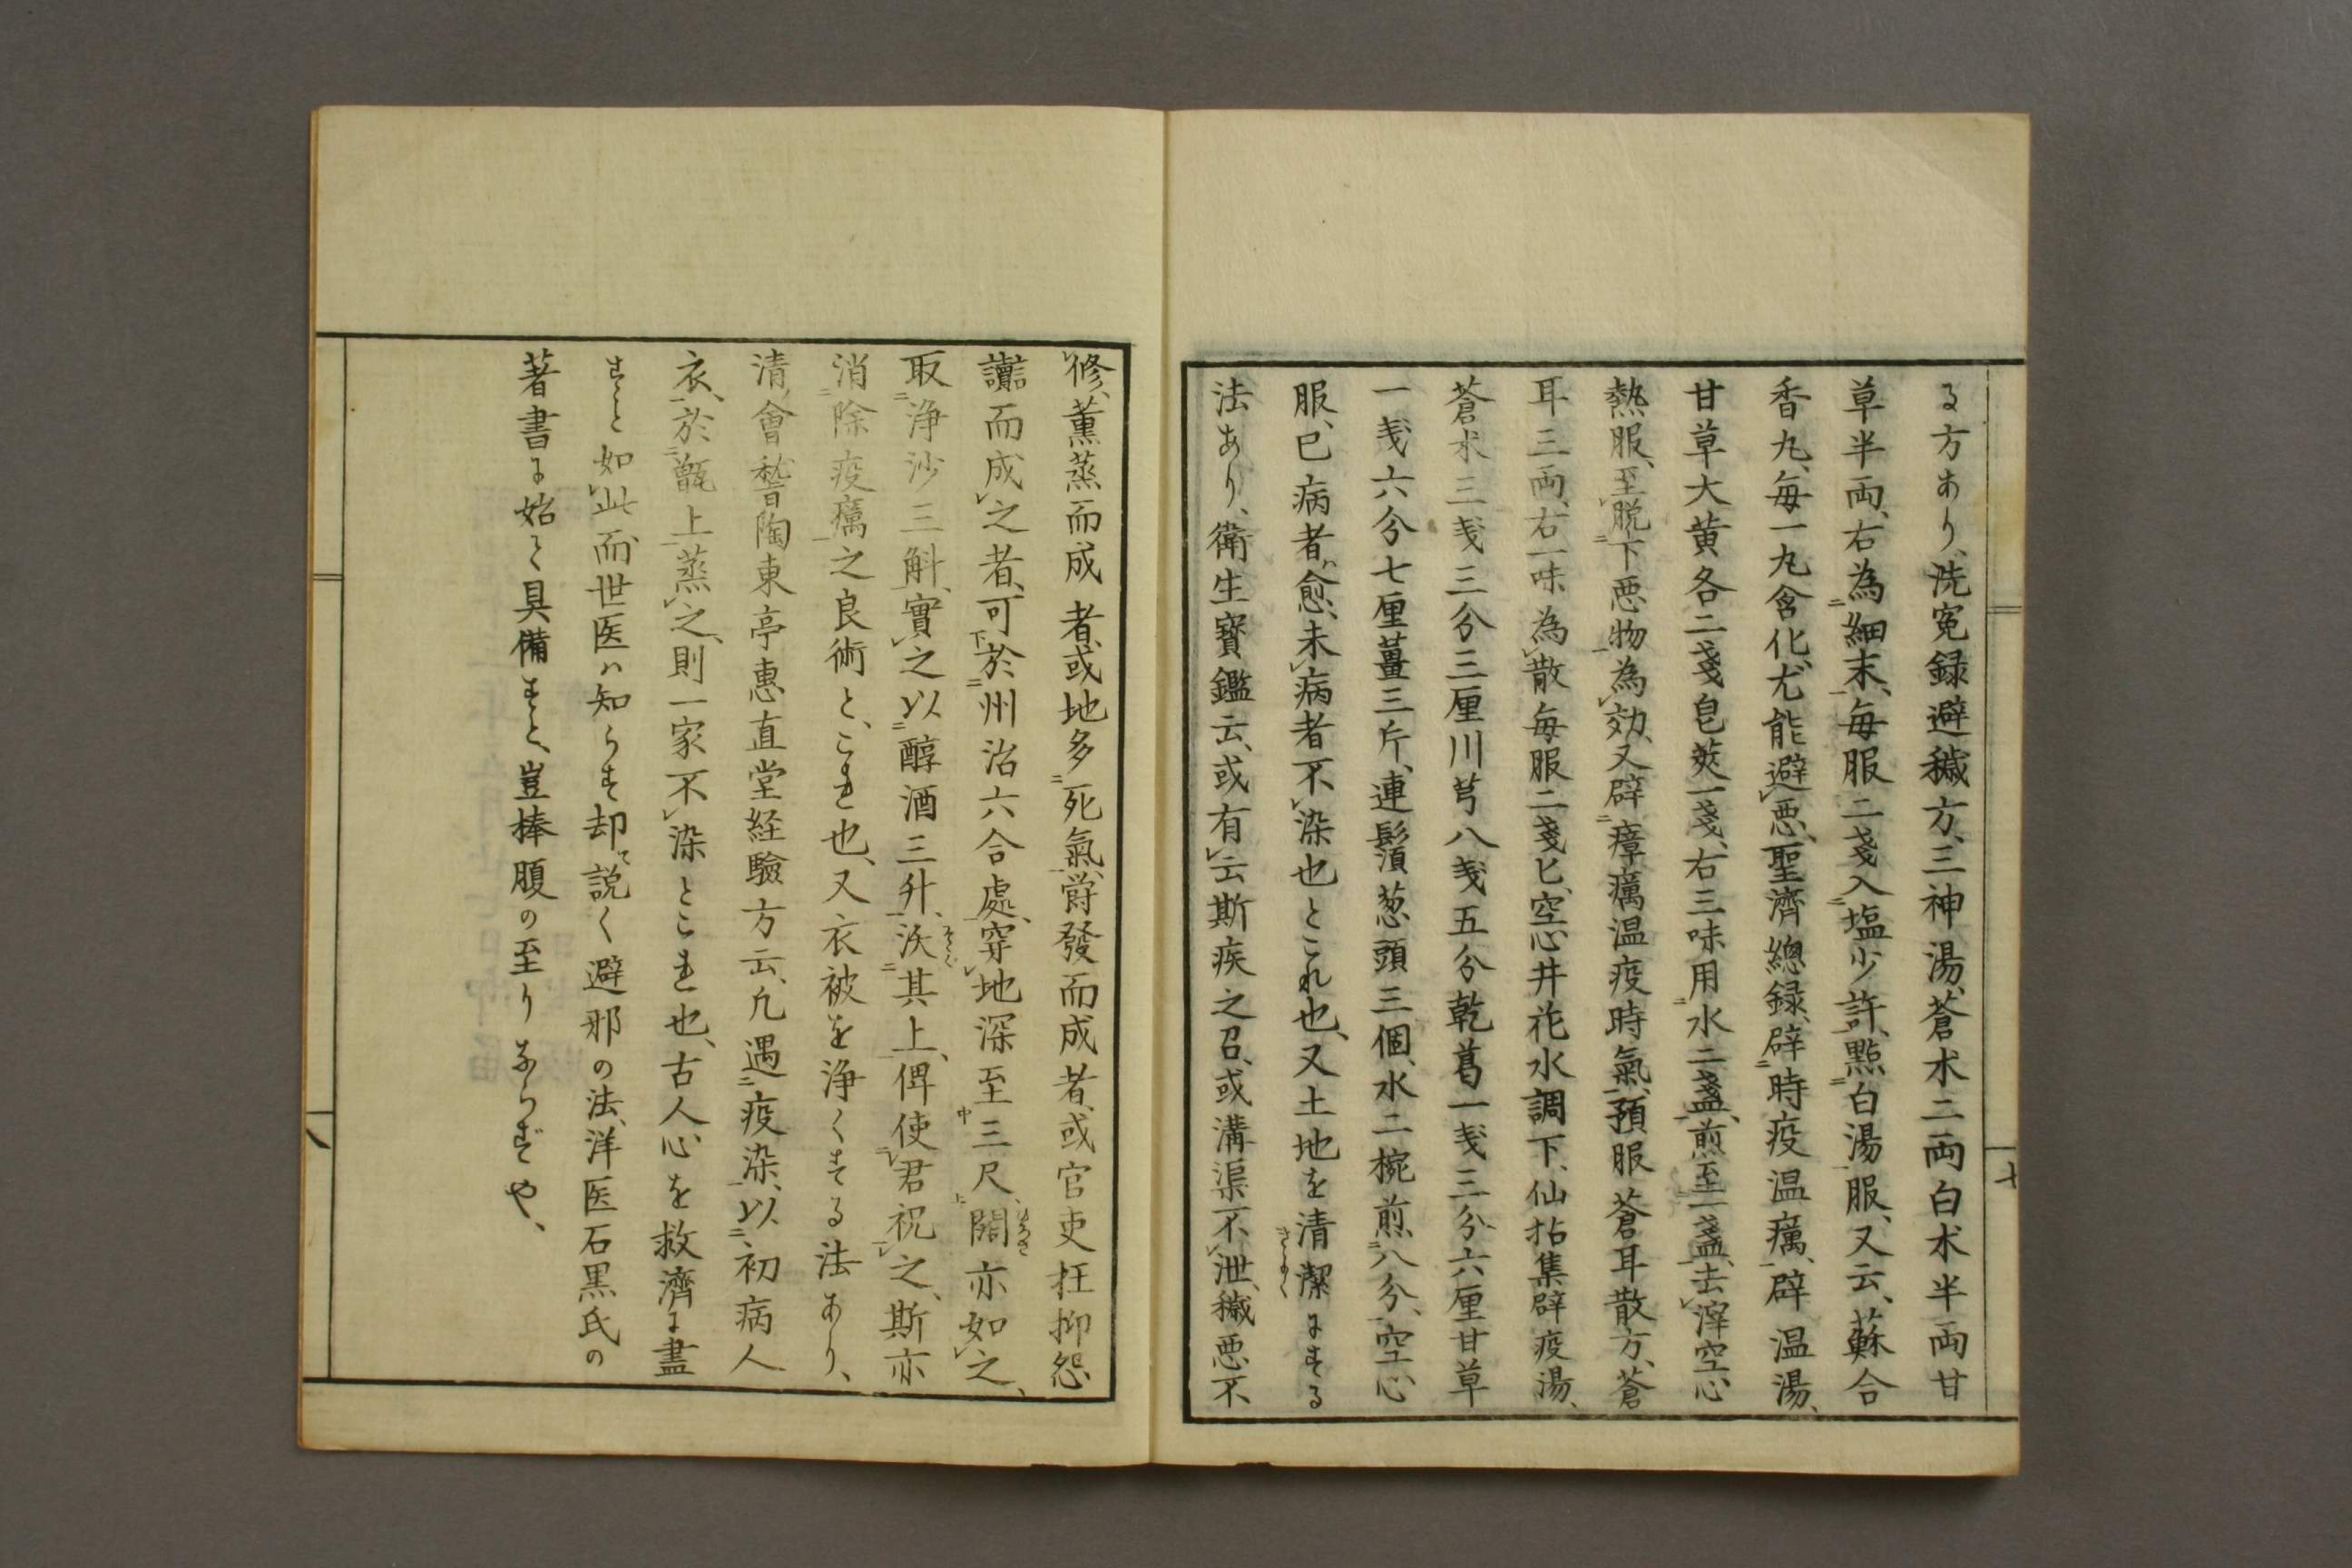 る方あり、洗冤録避穢方、三神湯、蒼朮二両白朮半両甘
草半両、右為細末、毎服二戔入塩少許、點白湯服、又云、蘇合
香丸、毎一丸含化尤能避悪、聖濟總録、辟時疫温癘、辟温湯、
甘草大黄各二戔皂莢一戔、右三味用水二盞、煎至一盞、去滓空心
熱服、至脱下悪物為効、又辟瘴癘温疫時氣、預服蒼耳散方、蒼
耳三両、右一味為散毎服二戔匕、空心井花水調下、仙拈集辟疫湯、
蒼朮三戔三分三厘川芎八戔五分乾葛一戔三分六厘甘草
一戔六分七厘薑三斤、連鬚葱頭三個、水二椀煎八分、空心
服、已病者ハ愈、未病者不染也とこれ也、又土地を清潔にする
きよめく
法あり、衛生寶鑑云、或有云斯疾之召、或溝渠不泄、穢悪不
七
修、薫蒸而成者、或地多死氣、欝發而成者、或官吏抂抑怨
讟而成之者、可於州治六合處、穿地深至三尺、闊亦如之、
ひろさ
取浄沙三斛、實之以醇酒三升、沃其上、俾使君祝之、斯亦
そゝぐ
消除疫癘之良術と、これ也、又衣被を浄くする法あり、
清ノ會稽陶東亭惠直堂経驗方云、凡遇疫染、以初病人
衣、於甑上蒸之、則一家不染とこれ也、古人心を救濟に盡
すこと如此而世医ハ知らす却て説く避邪の法、洋医石黒氏の
著書に始て具備すと、豈捧腹の至りならずや、
八